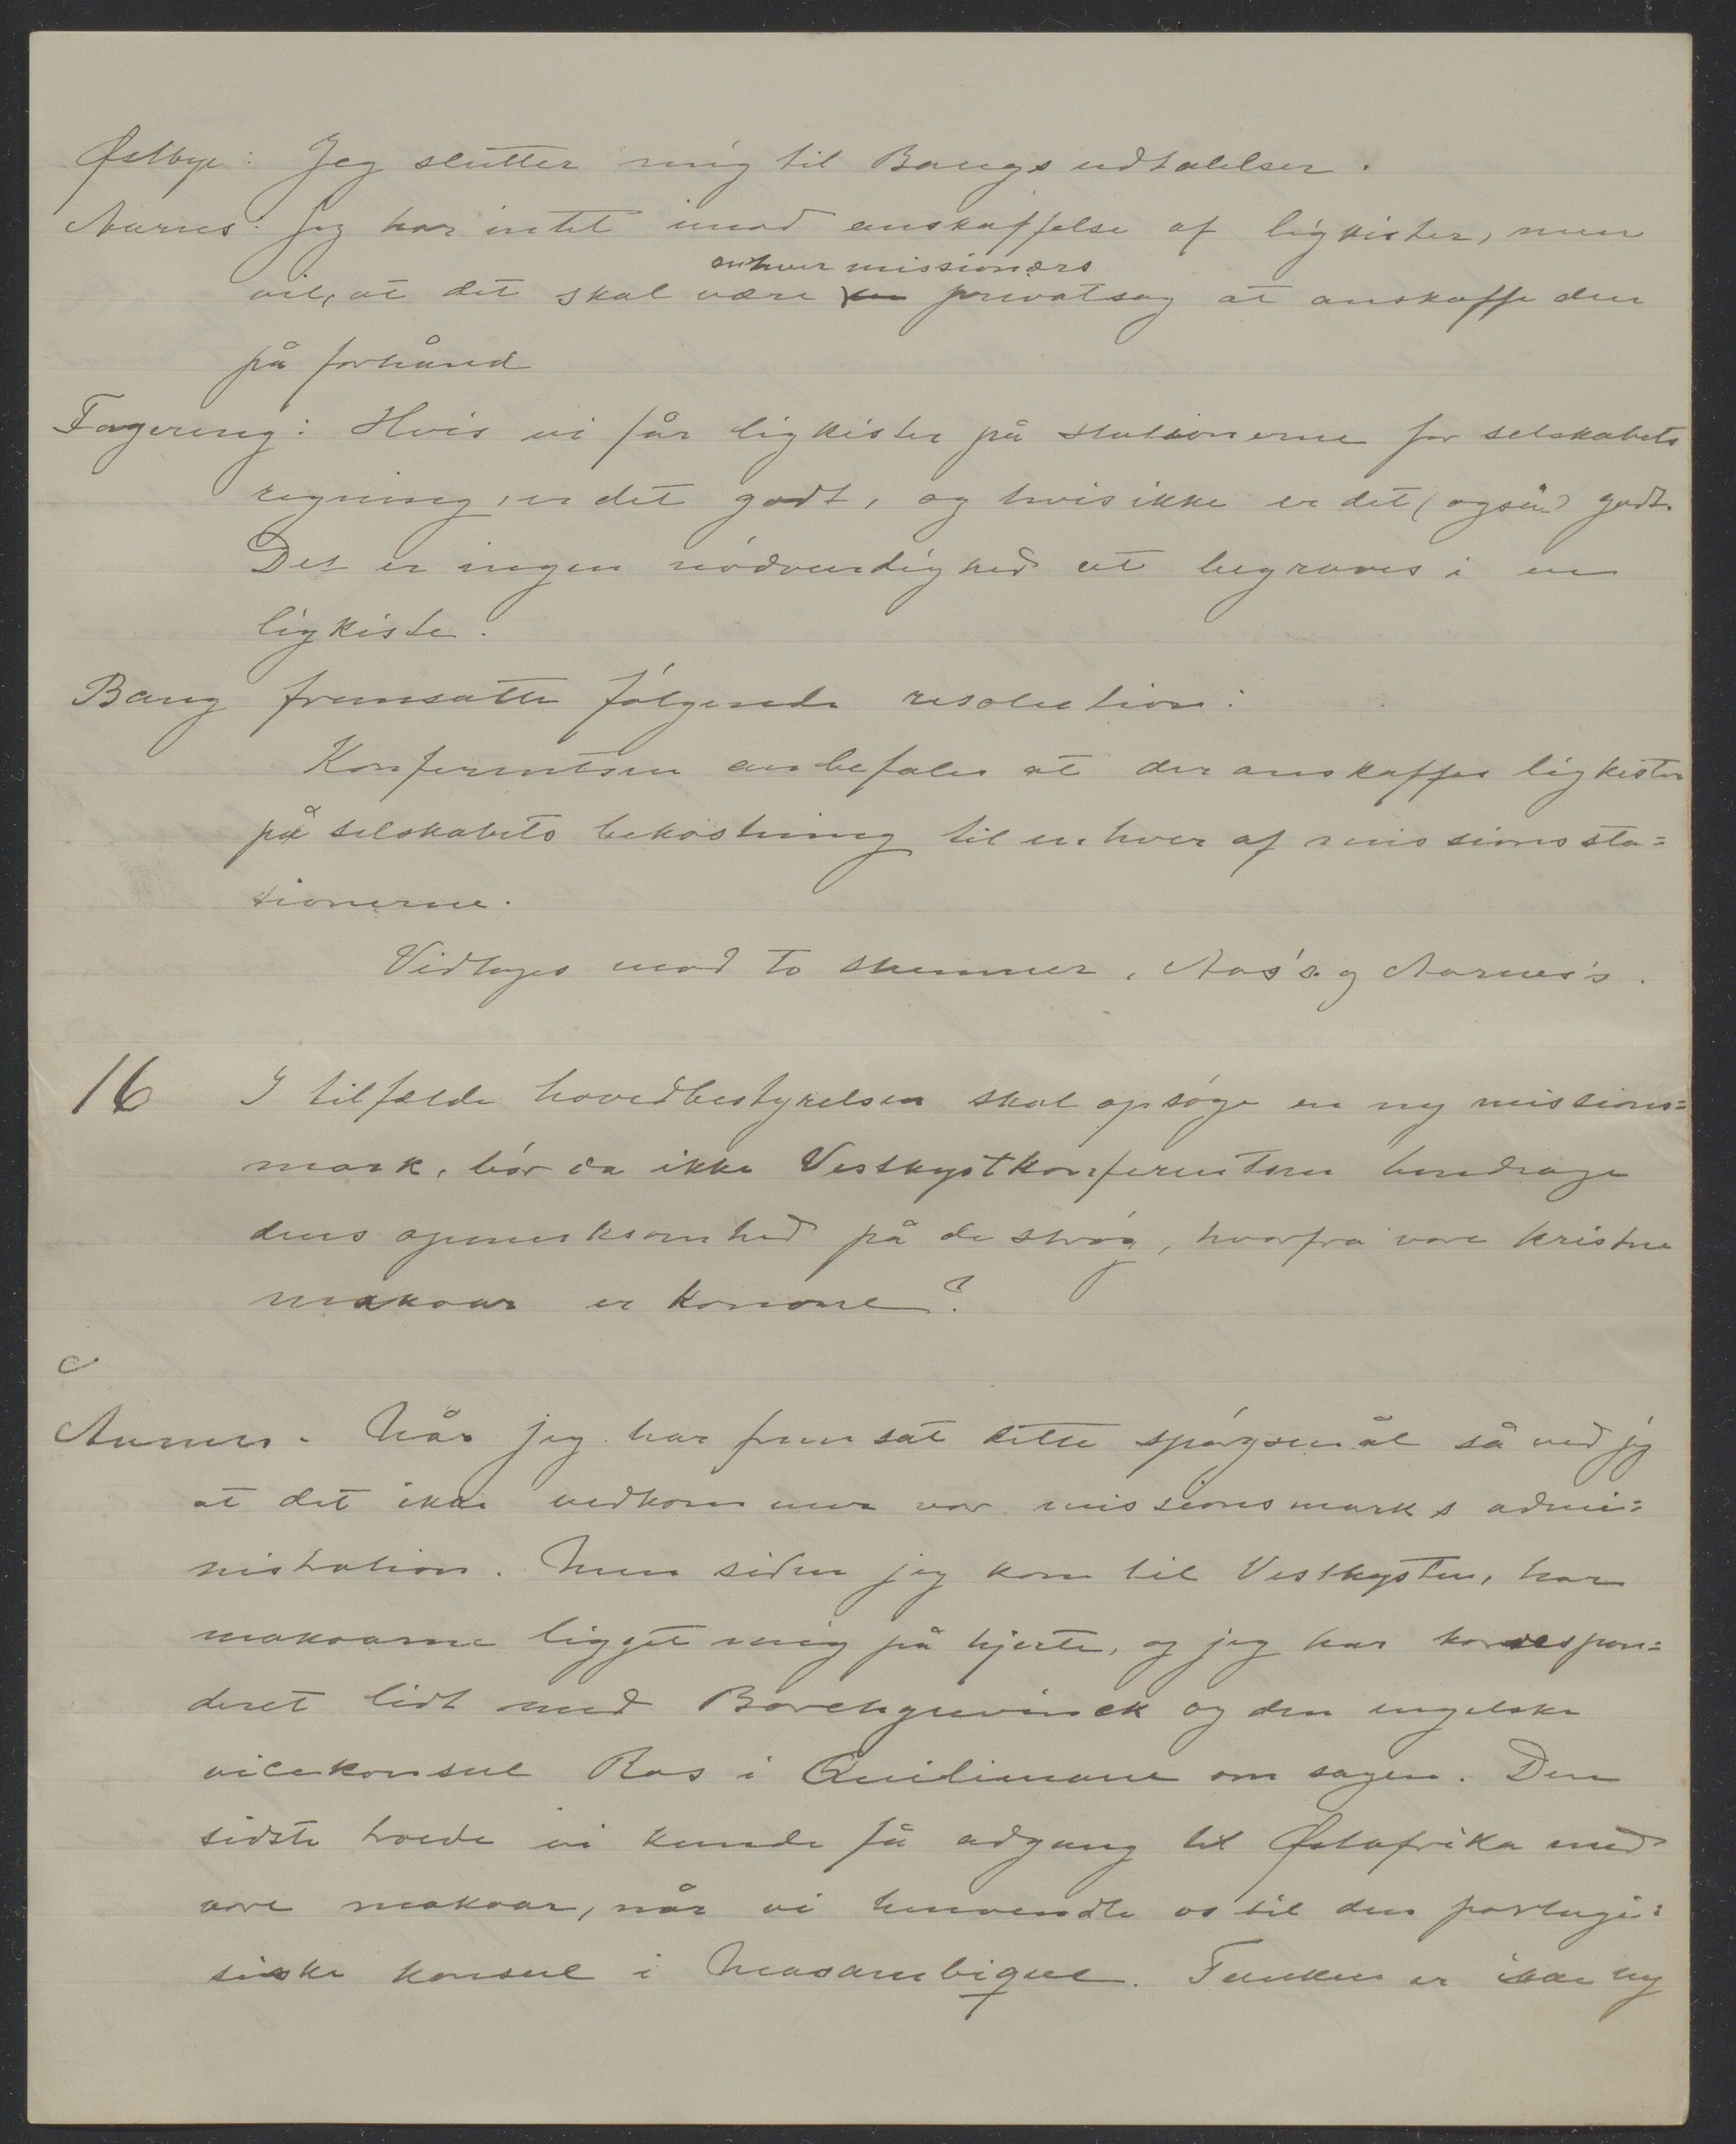 Østbye: Jeg slutter mig til Bangs udtalelser.
Aarnes: Jeg har intet imod anskaffelse af ligkister, men
enhver missionærs
vil, at det skal være en privatsag at anskaffe den
på forhånd
Fagereng: Hvis vi får ligkister på stationerne for selskabets
regning, er det godt, og hvis ikke er det (også) godt.
Det er ingen nödvendighed at begraves i en
ligkiste.
Bang fremsatte fölgende resolution:
Konferentsen anbefaler at der anskaffes ligkister
på selskabets bekostning til enhver af missionssta=
tionerne.
Vidtages mod to stemmer, Aas's og Aarnes's.
16 I tilfælde hovedbestyrelsen skal opsöge en ny missions=
mark, bör da ikke Vestkystkonferentsen hendrage
dens opmerksomhed på de strög, hvorfra vore kristne
makoar er komne?
Aarnes. Når jeg har fremsat dette spörgsmål så ved jeg
at det ikke vedkommer vor missionsmarks admi=
nistration. Men siden jeg kom til Vestkysten, har
makoarne ligget mig på hjerte, og jeg har korrespon=
deret lidt med Borchgrevinck og den engelske
vicekonsul Ros i Quilimane om sagen. Den
sidste troede vi kunde få adgang til Østafrika med
vore makoar, når vi henvendte os til den portugi=
siske konsul i Mosambique. Tanken er ikke ny